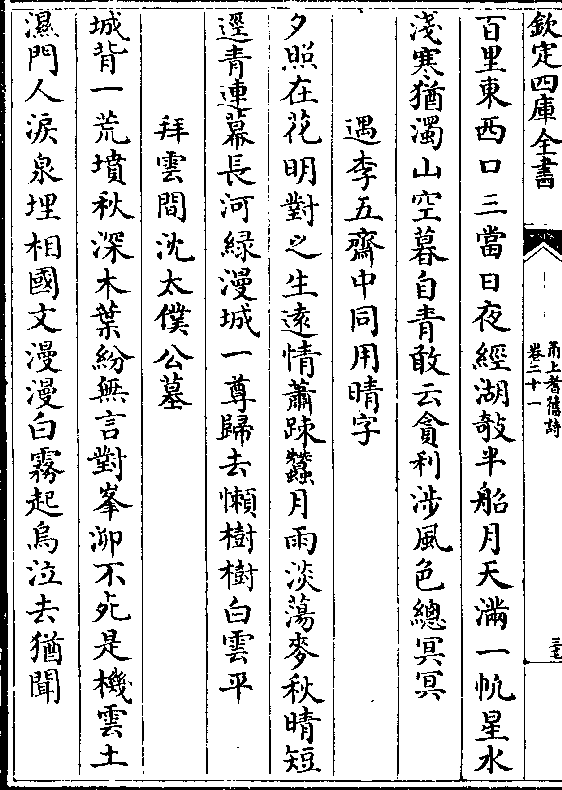 欽定四庫全書
甬上耆舊詩
卷二十一
三七
百里東西口三當日夜經湖敧半船月天滿一帆星水
淺寒猶濁山空暮自青敢云貪利涉風色總冥冥
遇李五齋中同用晴字
夕照在花明對之生遠情蕭踈蠶月雨淡蕩麥秋晴短
逕青連幕長河綠漫城一尊歸去懶樹樹白雲平
拜雲間沈太僕公墓
城背一荒墳秋深木葉紛無言對峯泖不死是機雲土
濕門人淚泉埋相國文漫漫白霧起烏泣去猶聞